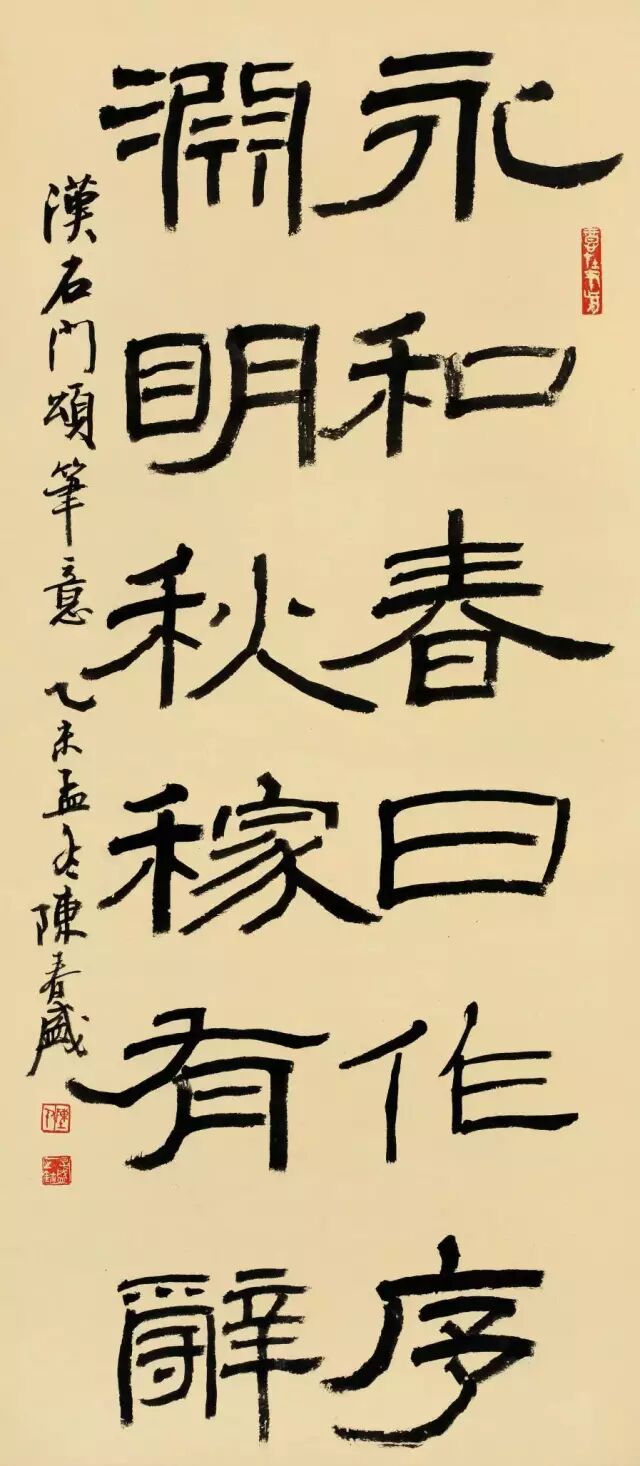 永和春日作序
淵明秋稼有辭
漢石門頌筆意 乙未孟冬陳春盛